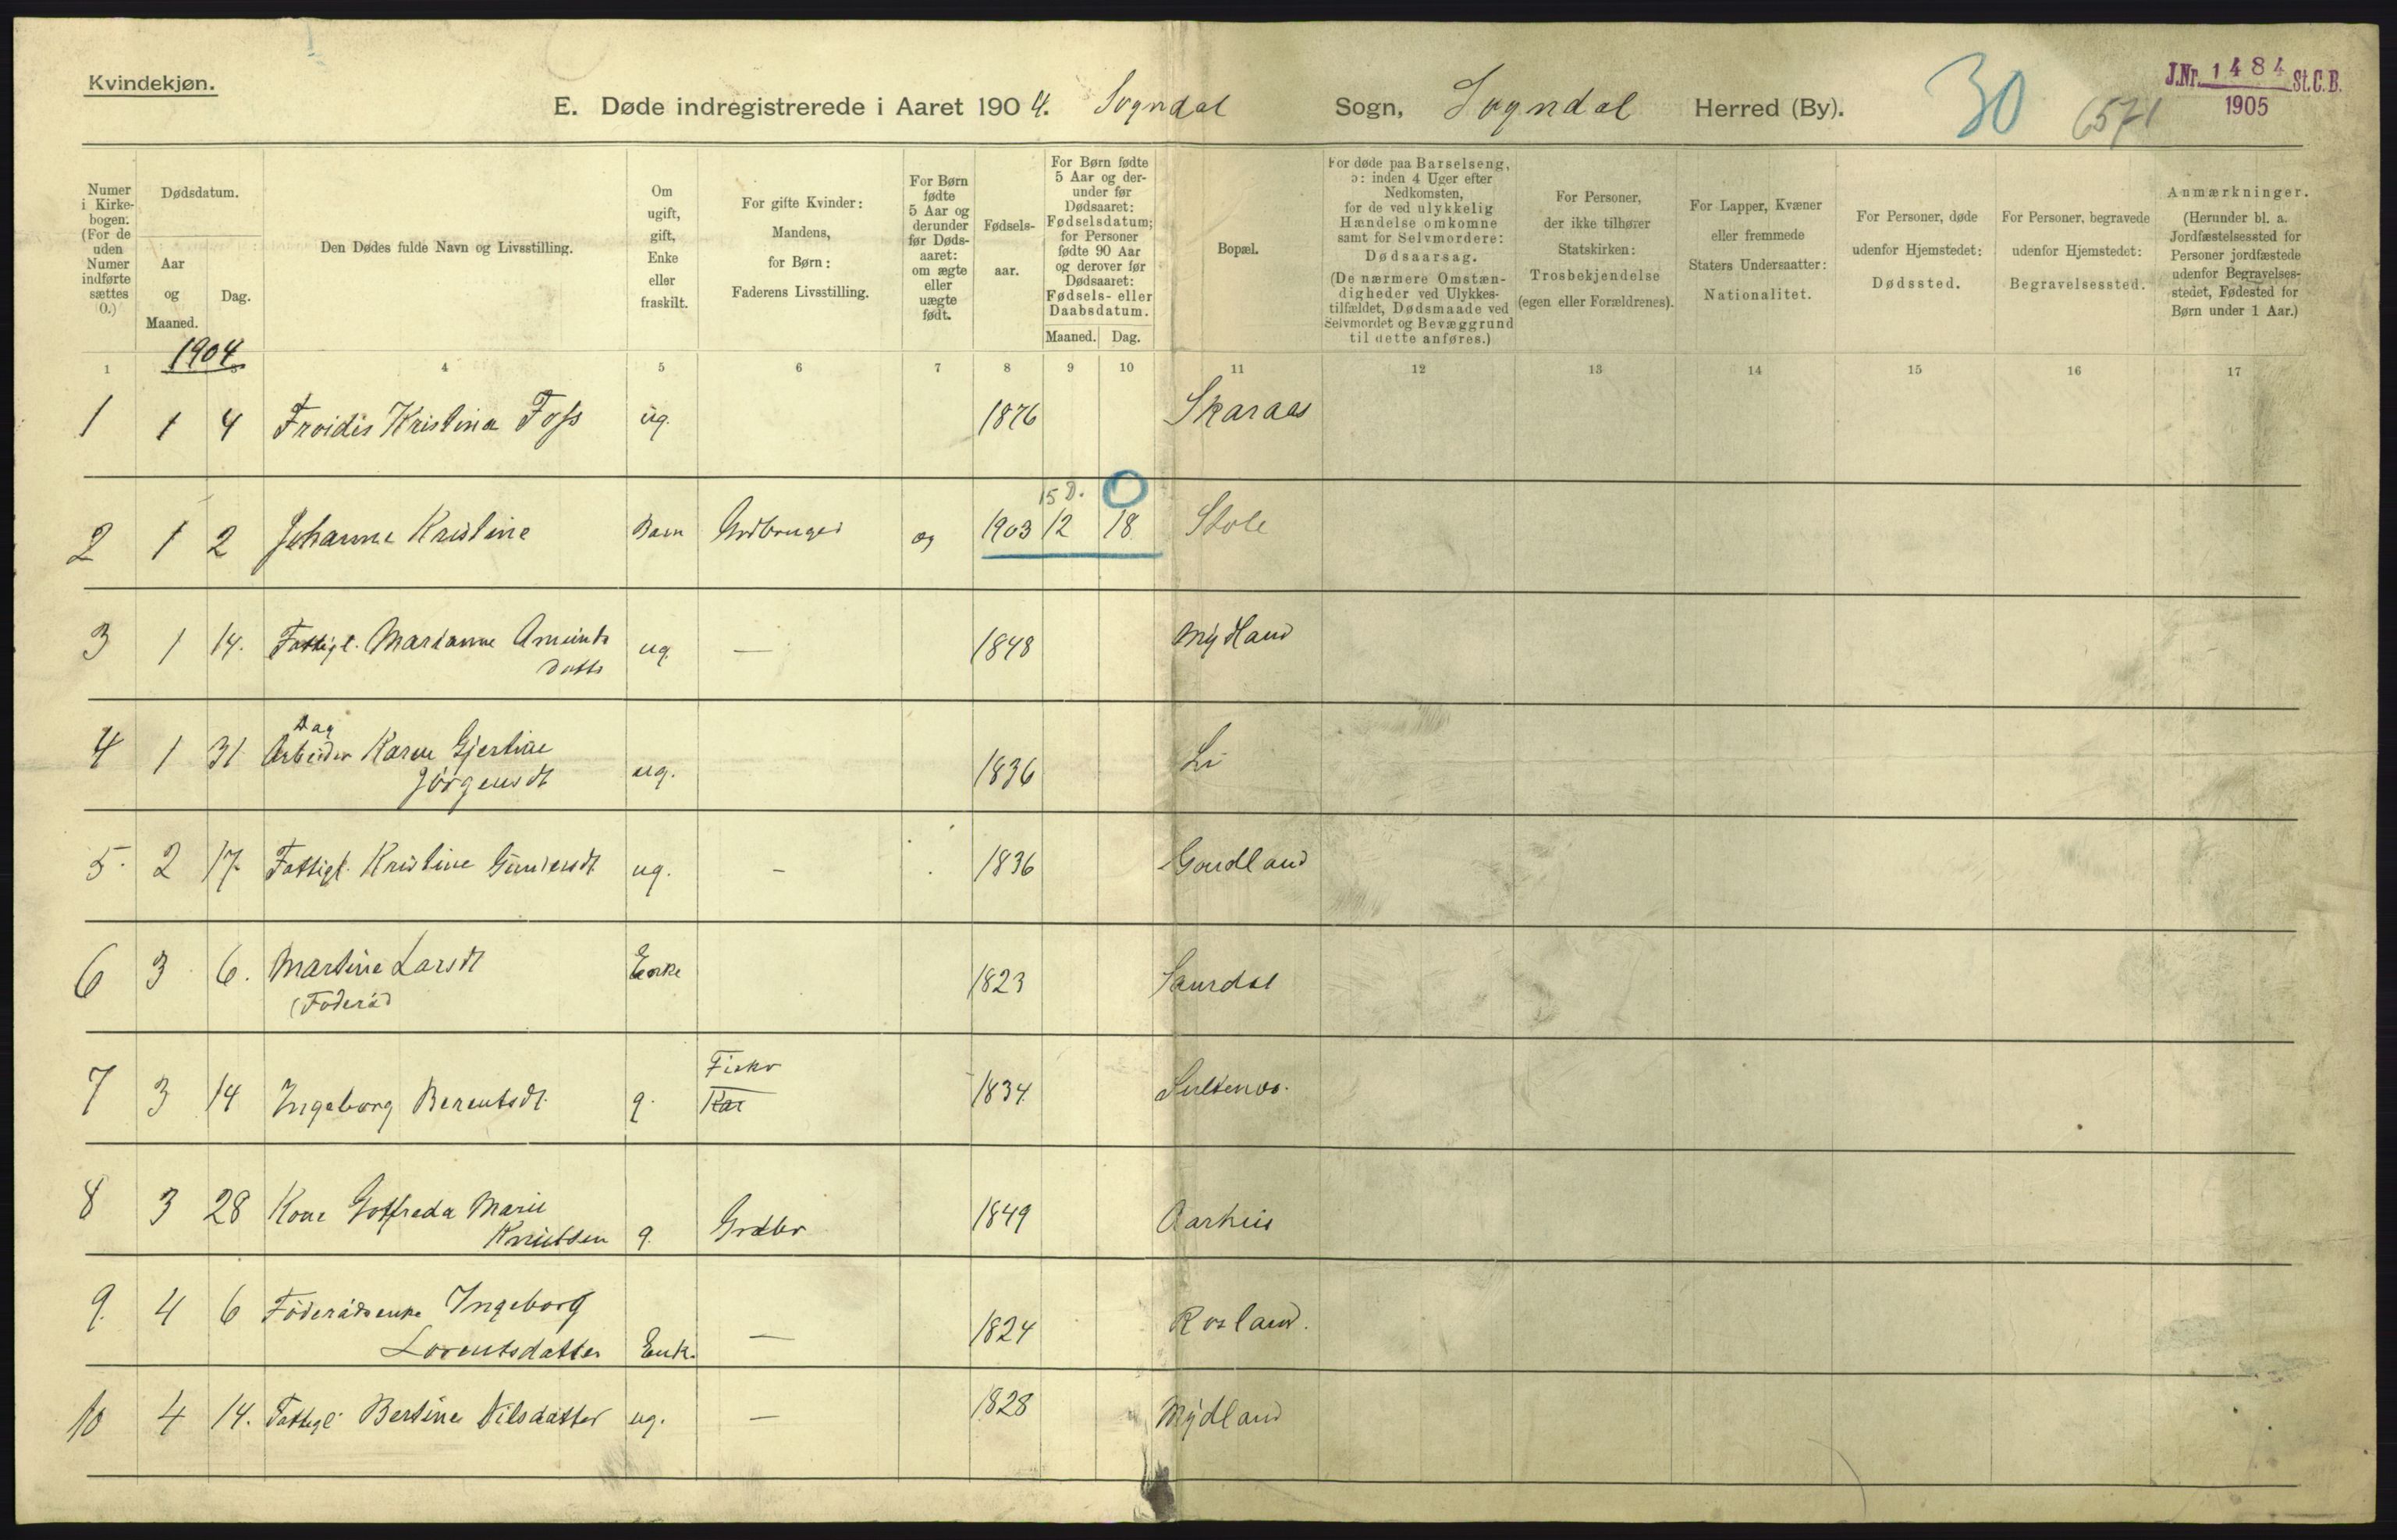 Kvindekjøn.
E. Døde indregistrerede i Aaret 1904. Sogndal Sogn, Sogndal Herred (By).
30
J.Nr. 1484 St.C.B.
1905
Numer i Kirke-bogen: (For de uden Numer indførte sættes 0.)
Dødsdatum.
Aar og Maaned.
Dag.
Den Dødes fulde Navn og Livsstilling.
Om ugift, gift, Enke eller fraskilt.
For gifte Kvinder: Mandens, for Børn: Faderens Livsstilling.
For Børn fødte 5 Aar og derunder før Døds-aaret: om ægte eller uægte født.
Fødsels-aar.
For Børn fødte 5 Aar og der-under før Dødsaaret: Fødselsdatum; for Personer fødte 90 Aar og derover før Dødsaaret: Fødsels- eller Daabsdatum.
Maaned. Dag.
Bopæl.
For døde paa Barselseng, ɔ: inden 4 Uger efter Nedkomsten, for de ved ulykkelig Hændelse omkomne samt for Selvmordere: Dødsaarsag. (De nærmere Omstæn-digheder ved Ulykkes-tilfældet, Dødsmaade ved Selvmordet og Bevæggrund til dette anføres.)
For Personer, der ikke tilhører Statskirken: Trosbekjendelse (egen eller Forældrenes).
For Lapper, Kvæner eller fremmede Staters Undersaatter: Nationalitet.
For Personer, døde udenfor Hjemstedet: Dødssted.
For Personer, begravede udenfor Hjemstedet: Begravelsessted.
Anmærkninger. (Herunder bl. a. Jordfæstelsessted for Personer jordfæstede udenfor Begravelses-stedet, Fødested for Børn under 1 Aar.)
1904
1 3 4 5 6 7 8 9 10 11 12 13 14 15 16 17
1 1 4 Froidis Kristina Foss ug. 1876 Skaraas
15 D. 0
2 1 2 Johanne Kristine Barn Grdbruger æg 1903 12 18 Stole
3 1 14. Fattigl. Marianne Amunds ug. — 1848 Mydland
datte
Dag
4 1 31 Arbeider Karen Gjertine ug. 1836 Li
Jörgensdt
5. 2 17. Fattigl. Kristine Gundersdt. ug. - 1836
6 3 6. Martine Larsdt Enke 1823
(Föderåd
Fiskr
7 3 14 Ingeborg Berentsdt. g. Kar 1834
8 3 28 Kone Gotfreda Marie 1849 Aarhus
Knutsen g. Grdbr
9. 4 6 Föderådsenke Ingeborg 1824 Rosland.
Lorentsdatter Enk. —
10 4 14. Fattigl Bertine Nilsdatter ug. — 1828 Mydland